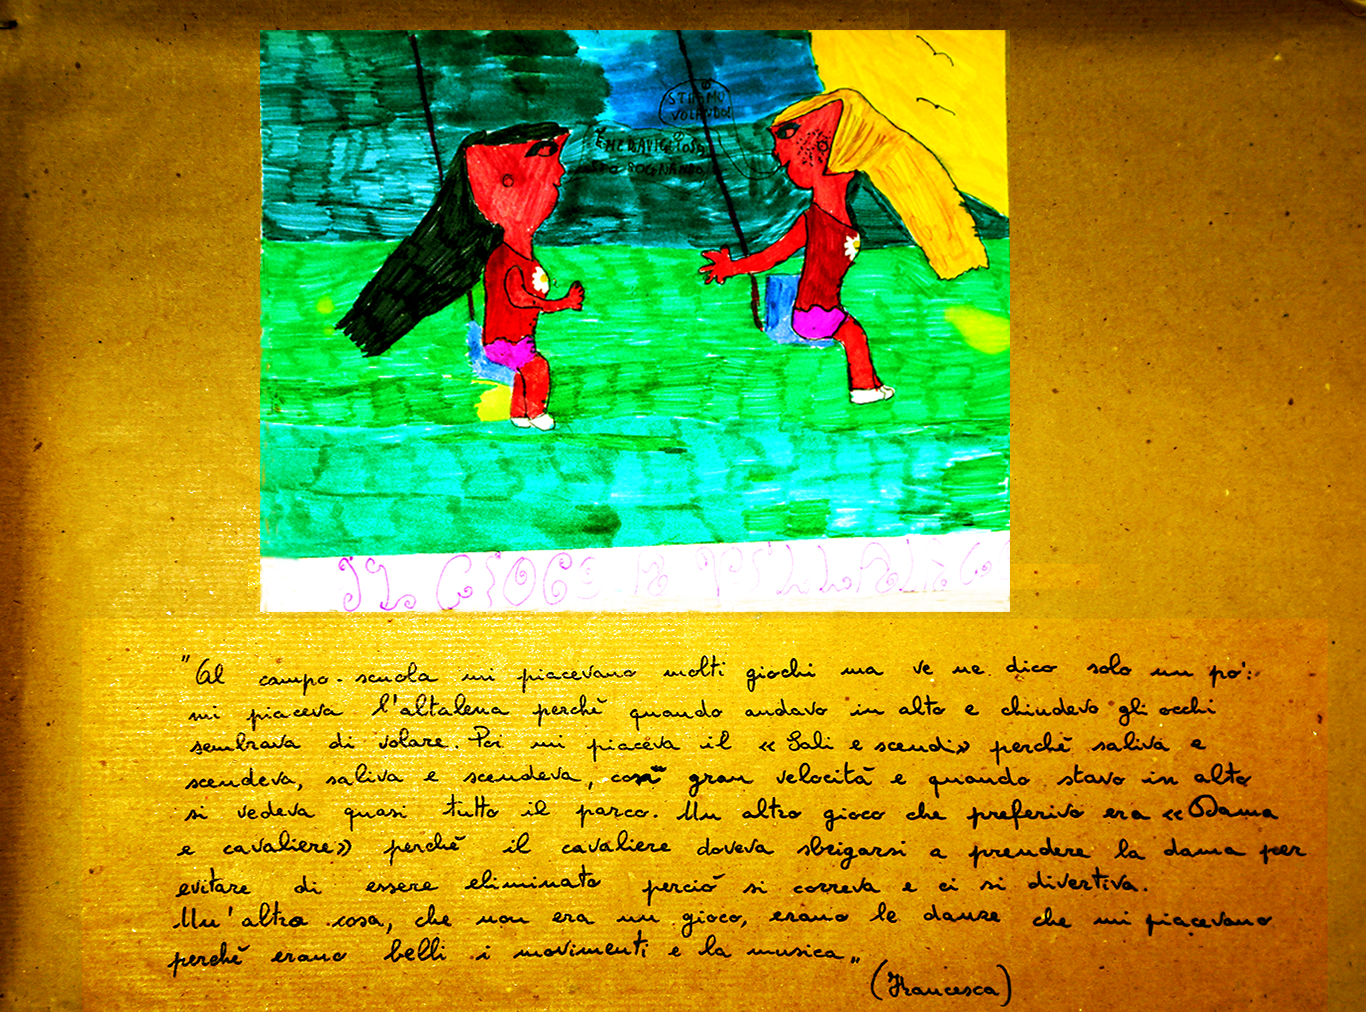 STIAMO
VOLANDO!
È MERAVIGLIOSO
STO SOGNANDO
IL GIOCO
"Al campo-scuola mi piacevano molti giochi ma ve ne dico solo un po':
mi piaceva l'altalena perchè quando andavo in alto e chiudevo gli occhi
sembrava di volare. Poi mi piaceva il «Sali e scendi» perchè saliva e
scendeva, saliva e scendeva, con gran velocità e quando stavo in alto
si vedeva quasi tutto il parco. Un altro gioco che preferivo era «Dama
e cavaliere» perchè il cavaliere doveva sbrigarsi a prendere la dama per
evitare di essere eliminato perciò si correva e ci si divertiva.
Un'altra cosa, che non era un gioco, erano le danze che mi piacevano
perchè erano belli i movimenti e la musica„
(Francesca)